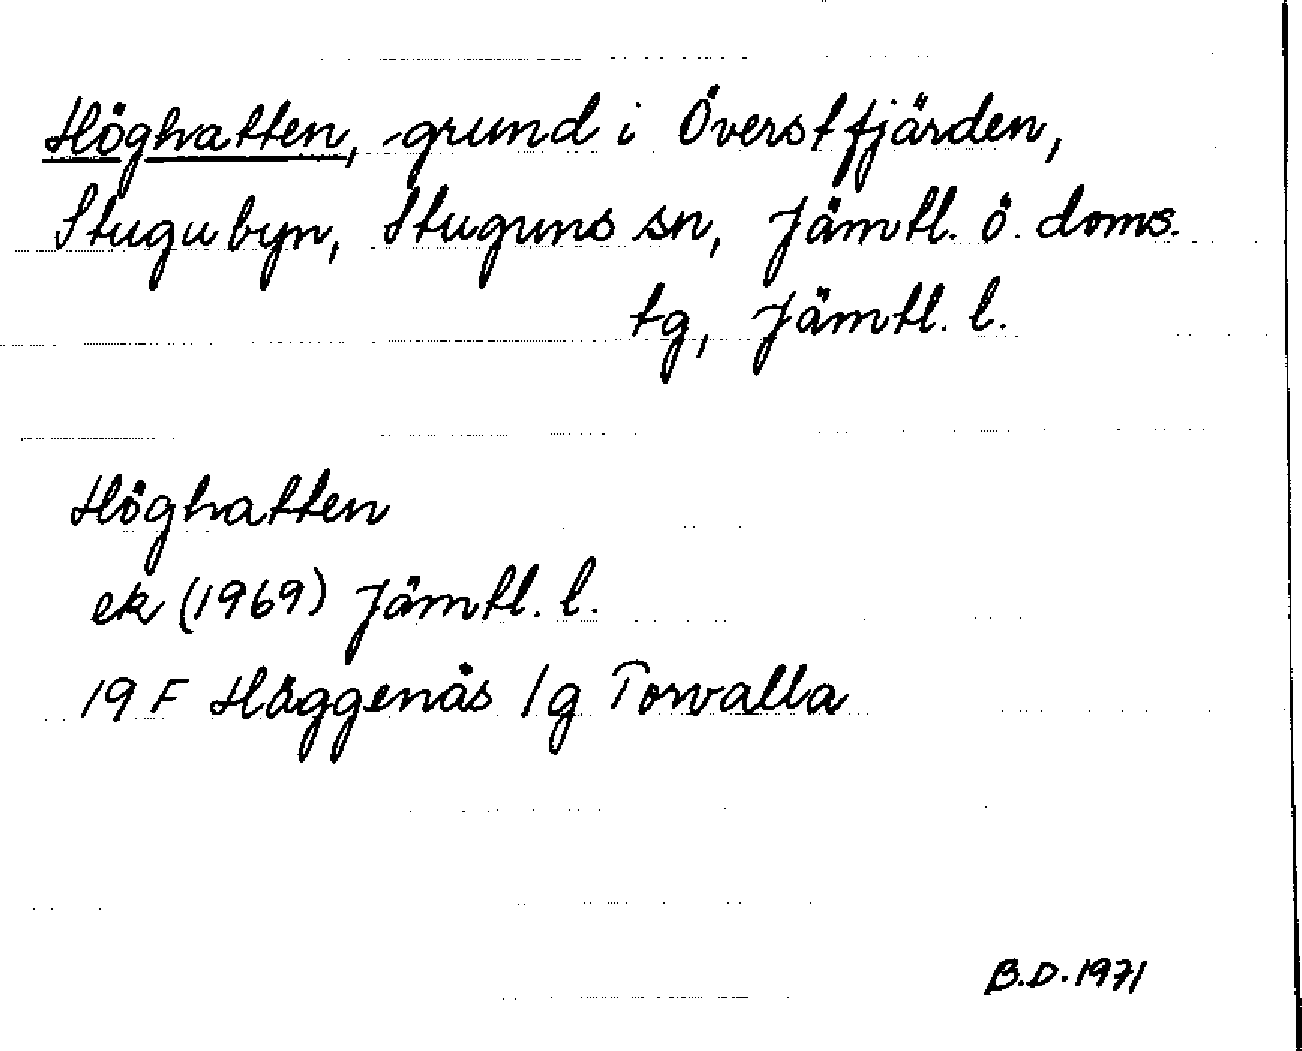 Höghatten, grund i Överstfjärden,
Stugubyn, Stuguns sn, Jämtl. ö. doms.
tg, Jämtl. l.
Höghatten
ek (1969) Jämtl. l.
19 F Häggenås 1g Torvalla
B.D. 1971